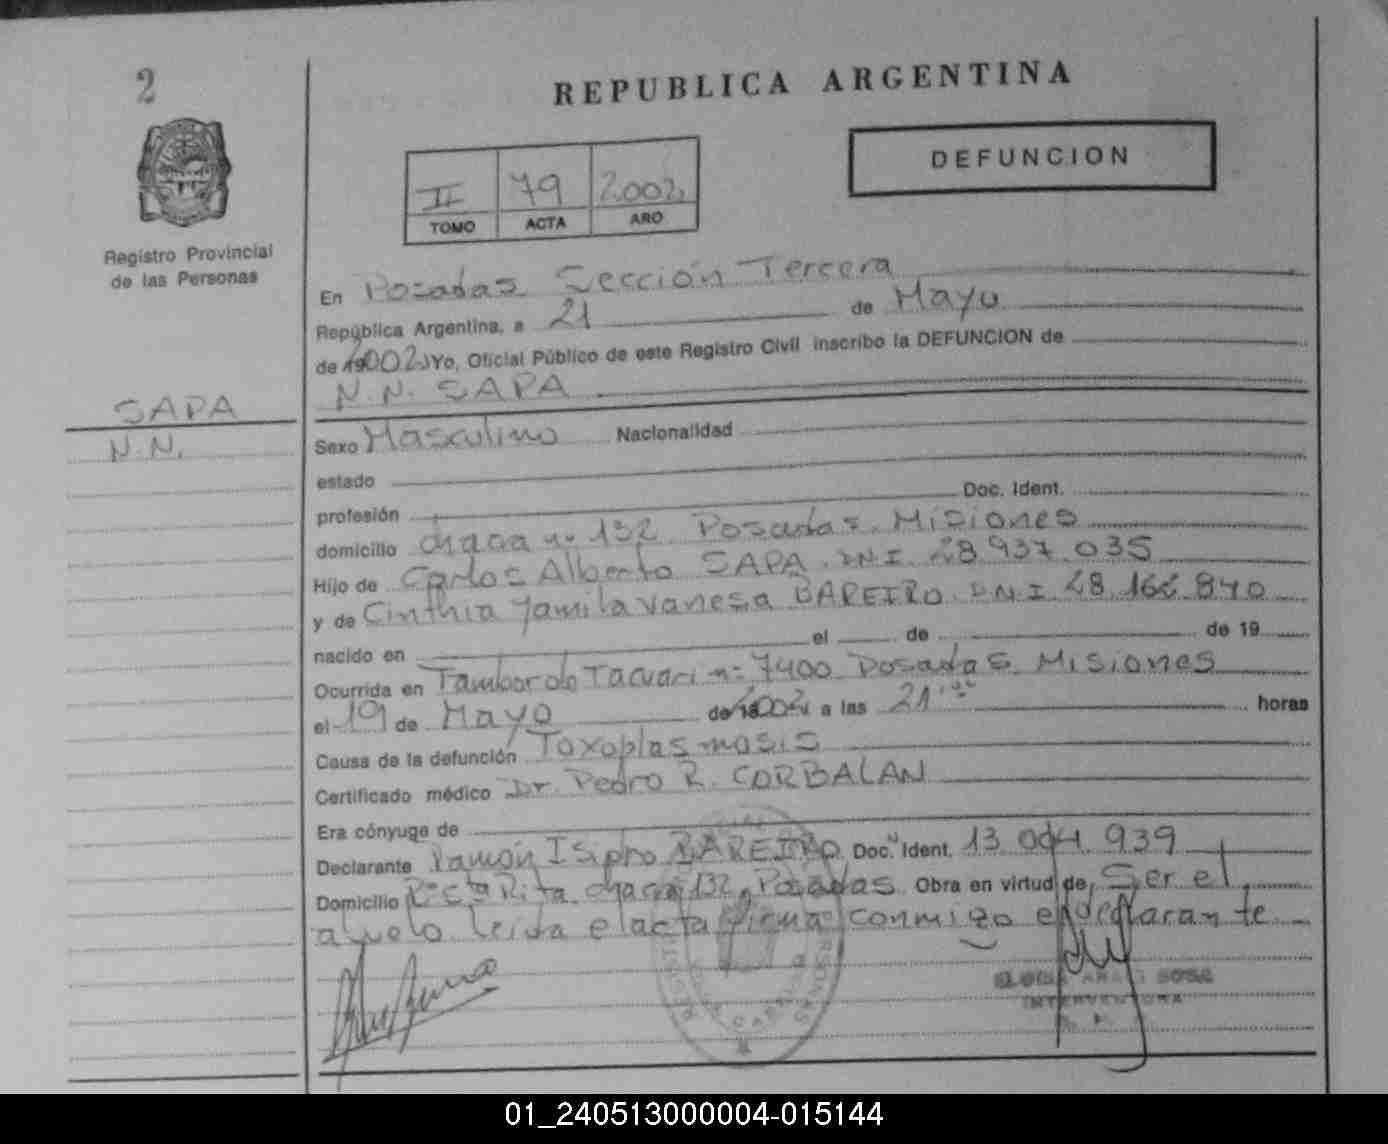 2
REPUBLICA ARGENTINA
DEFUNCION
II 79 2002
TOMO ACTA AÑO
Registro Provincial
de las Personas
En Posadas Sección Tercera
República Argentina, a 21 de Mayo
de 2002 Yo, Oficial Público de este Registro Civil inscribo la DEFUNCION de
N.N. SAPA
SAPA
N.N.
Sexo Masculino Nacionalidad
estado
profesión Doc. Ident.
domicilio chacra nº 132 Posadas. Misiones
Hijo de Carlos Alberto SAPA. D.N.I. 28.937.035
y de Cinthia Yamila Vanesa BAREIRO. D.N.I. 28.166.840
nacido en el de de 19
Ocurrida en Tambor de Tacuari nº 7400 Posadas. Misiones
el 19 de Mayo de 2002 a las 21 horas
Causa de la defunción Toxoplasmosis
Certificado médico Dr. Pedro R. CORBALAN
Era cónyuge de
Declarante Ramón Isidro BAREIRO Doc. Ident. 13.004.939
Domicilio Sta Rita chacra 132, Posadas Obra en virtud de Ser el
abuelo leída el acta firma conmigo el declarante
SOSA
INTERVENTORA
01_240513000004-015144